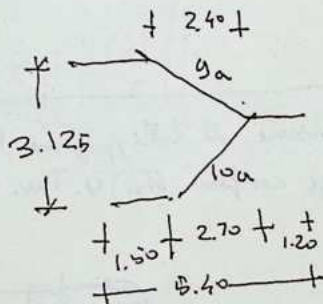 2.40
9a
3.125
10a
1.50 2.70 1.20
5.40